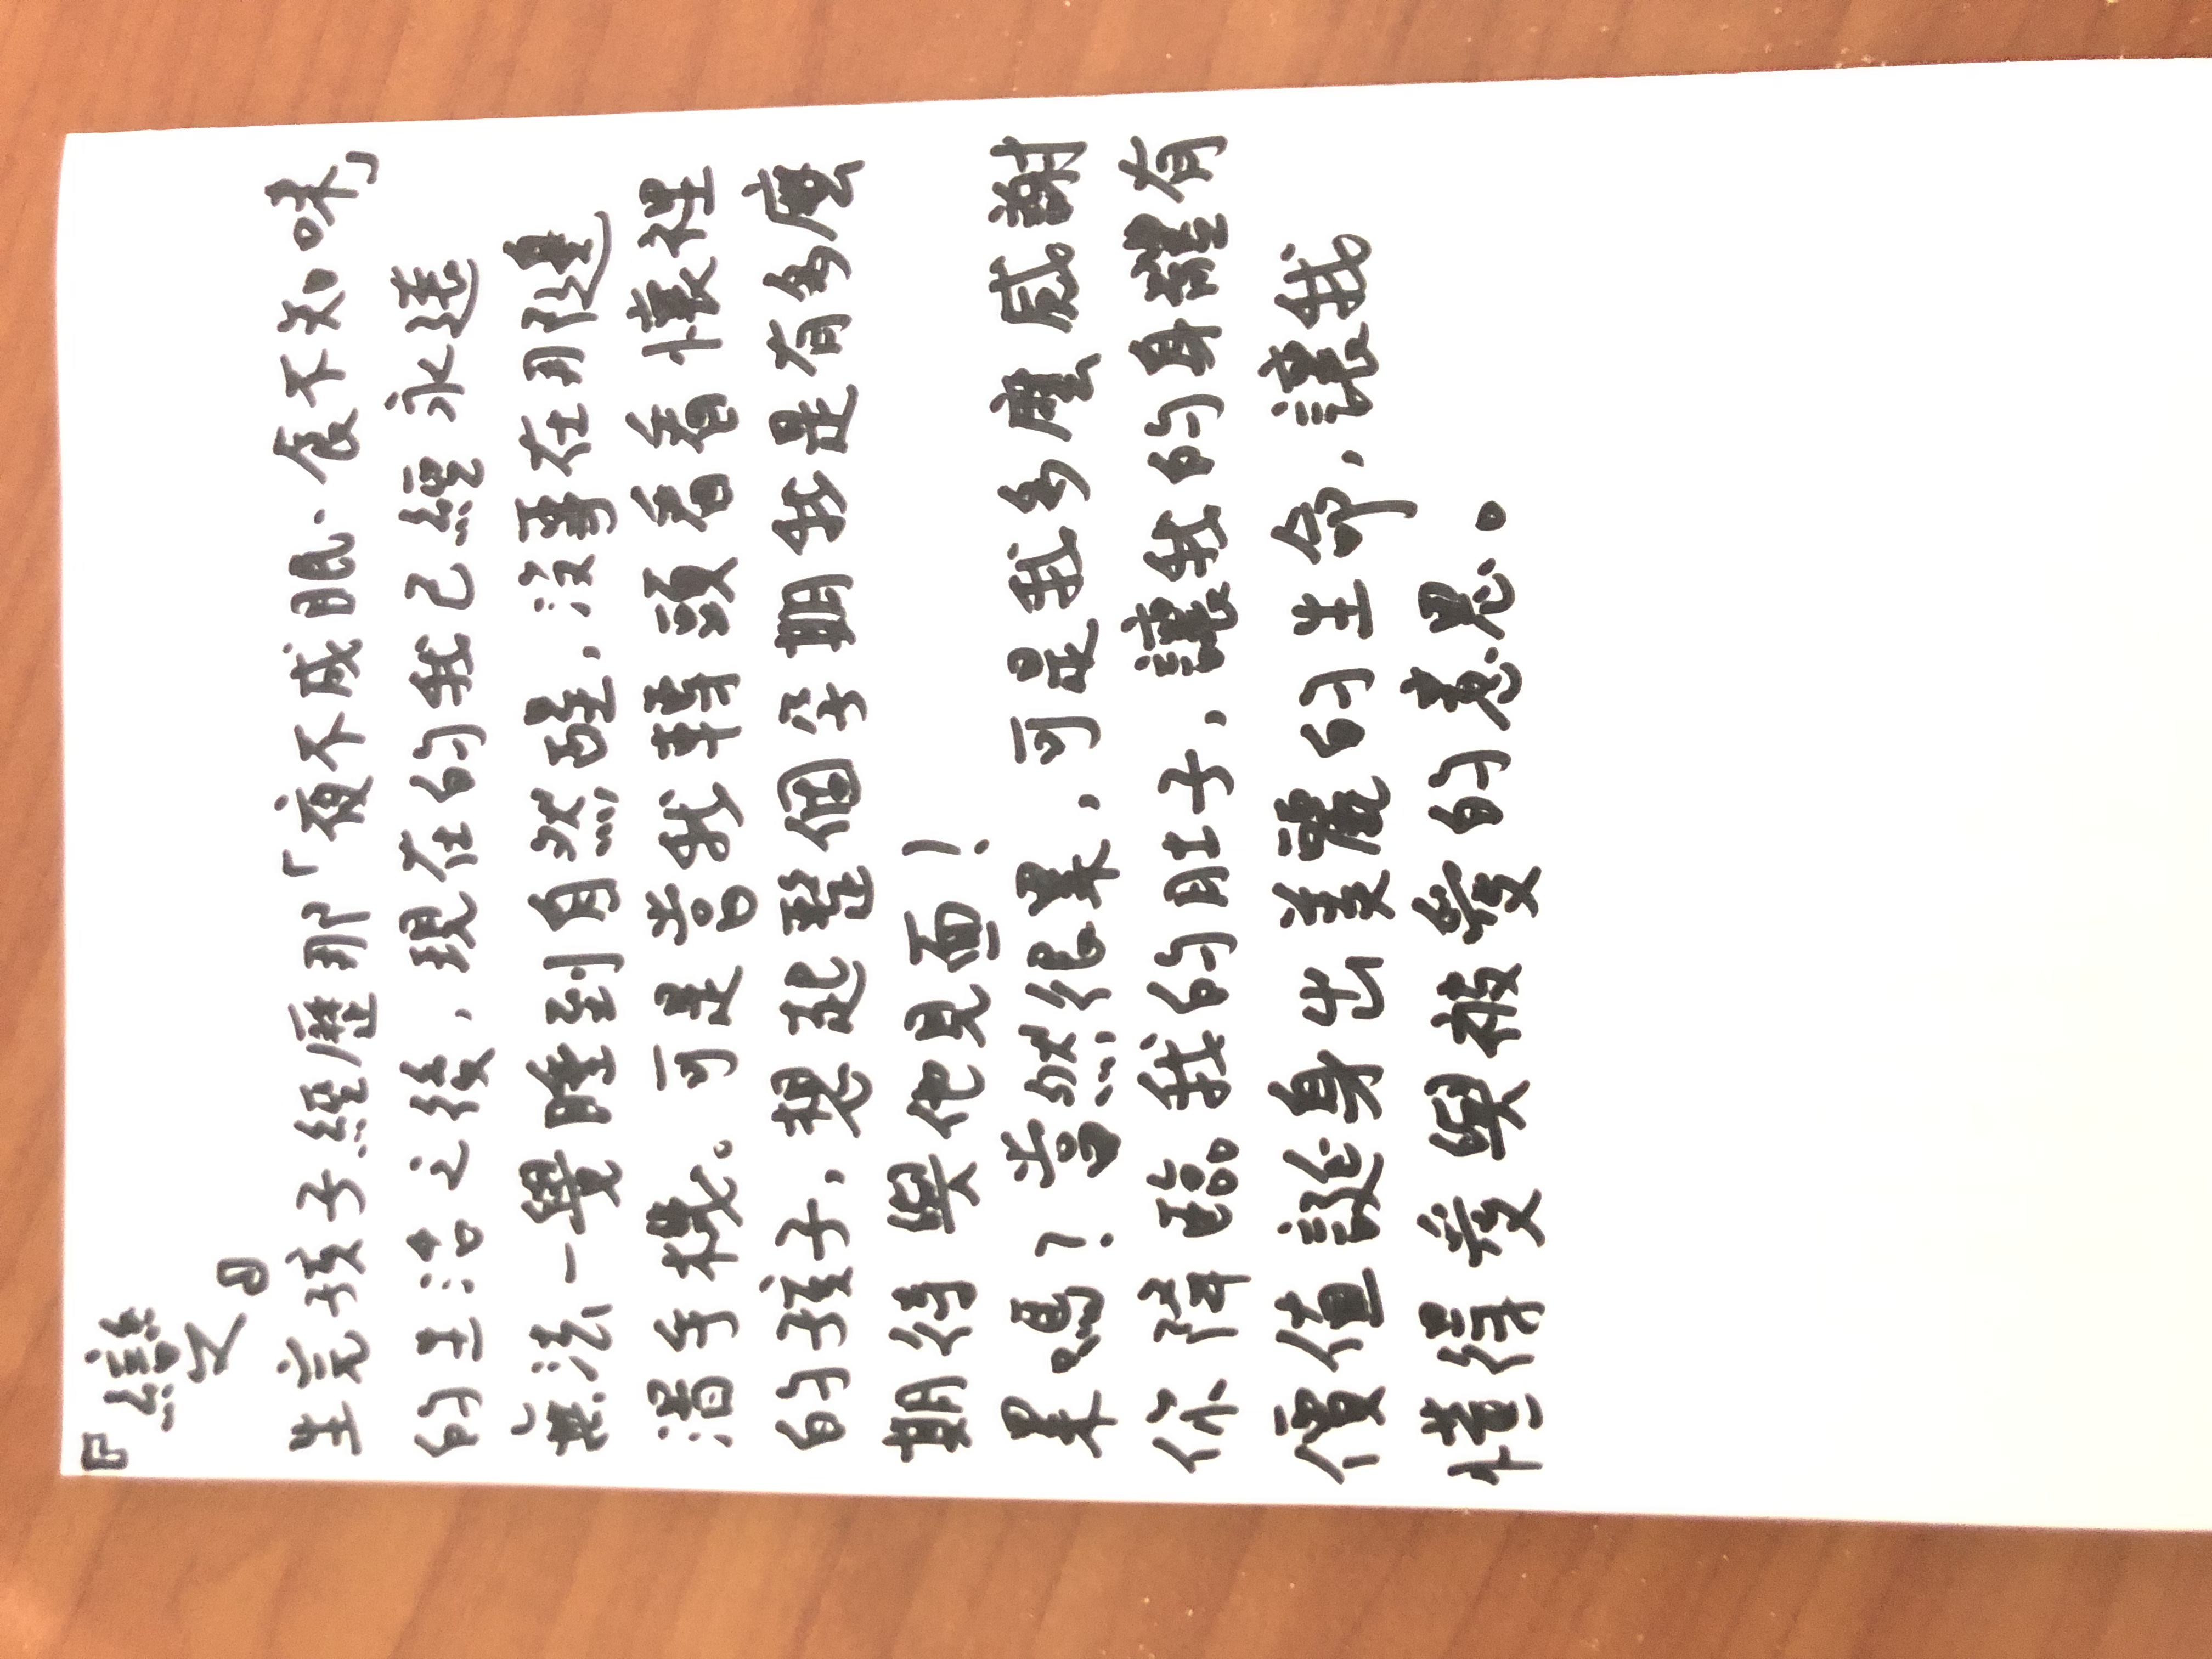 『戀
文』
生完孩子經歷那「夜不成眠、食不知味」
的生活之後，現在的我已經永遠
無法一覺睡到自然醒，沒事在那邊
滑手機。可是當我轉頭看着懷裡
的孩子，想起整個孕期我是有多麼
期待與他見面！
累嗎？當然很累，可是我多麼感謝
你降臨我的肚子，讓我的身體有
價值誕身出美麗的生命，讓我
懂得愛與被愛的意思。